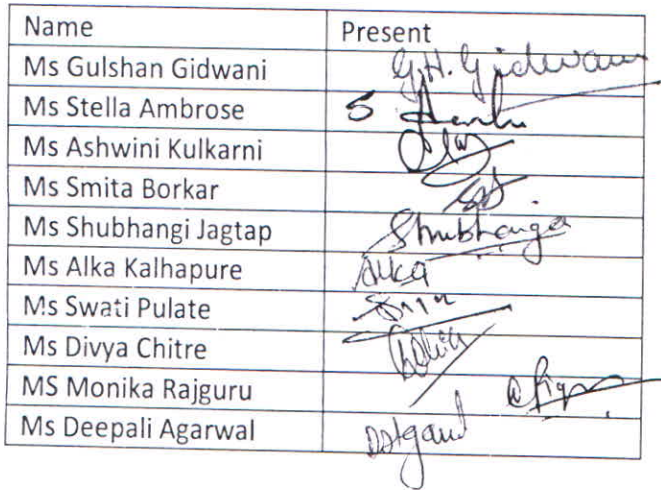 Name Present
Ms Gulshan Gidwani G.H. Gidwani
Ms Stella Ambrose S
Ms Ashwini Kulkarni
Ms Smita Borkar
Ms Shubhangi Jagtap Shubhangi
Ms Alka Kalhapure Alka
Ms Swati Pulate
Ms Divya Chitre
MS Monika Rajguru
Ms Deepali Agarwal